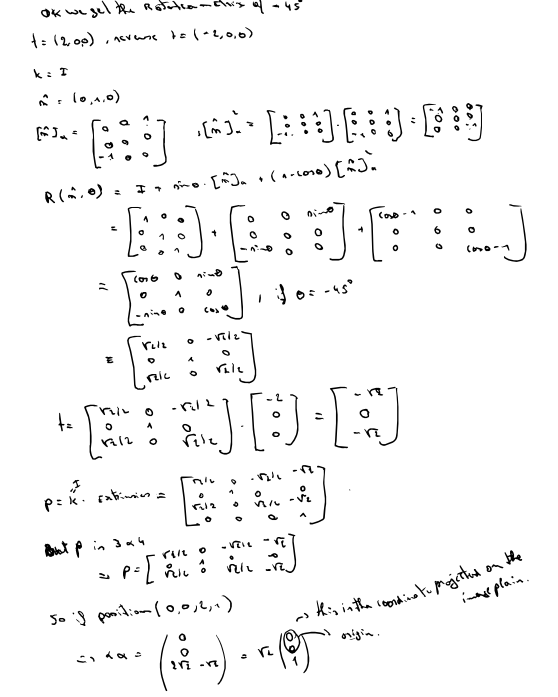 OK we get the Rotation matrix of -45°
t = (2,0,0), reverse t = (-2,0,0)
k = I
n̂ = (0,1,0)
[n̂]ₓ = [0 0 1; 0 0 0; -1 0 0], [n̂]ₓ² = [0 0 1; 0 0 0; -1 0 0] · [0 0 1; 0 0 0; -1 0 0] = [-1 0 0; 0 0 0; 0 0 -1]
R(n̂, θ) = I + sinθ · [n̂]ₓ + (1-cosθ) [n̂]ₓ²
= [1 0 0; 0 1 0; 0 0 1] + [0 0 sinθ; 0 0 0; -sinθ 0 0] + [cosθ-1 0 0; 0 0 0; 0 0 cosθ-1]
= [cosθ 0 sinθ; 0 1 0; -sinθ 0 cosθ], if θ = -45°
= [√2/2 0 -√2/2; 0 1 0; √2/2 0 √2/2]
t = [√2/2 0 -√2/2; 0 1 0; √2/2 0 √2/2] · [-2; 0; 0] = [-√2; 0; -√2]
I
P = k · extrinsics = [√2/2 0 -√2/2 -√2; 0 1 0 0; √2/2 0 √2/2 -√2; 0 0 0 1]
But P in 3x4
⇒ P = [√2/2 0 -√2/2 -√2; 0 1 0 0; √2/2 0 √2/2 -√2]
So if position (0,0,2,1)
→ this is the coordinate projected on the image plain.
→ origin.
= (0; 0; 2√2 -√2) = √2 (0; 0; 1)